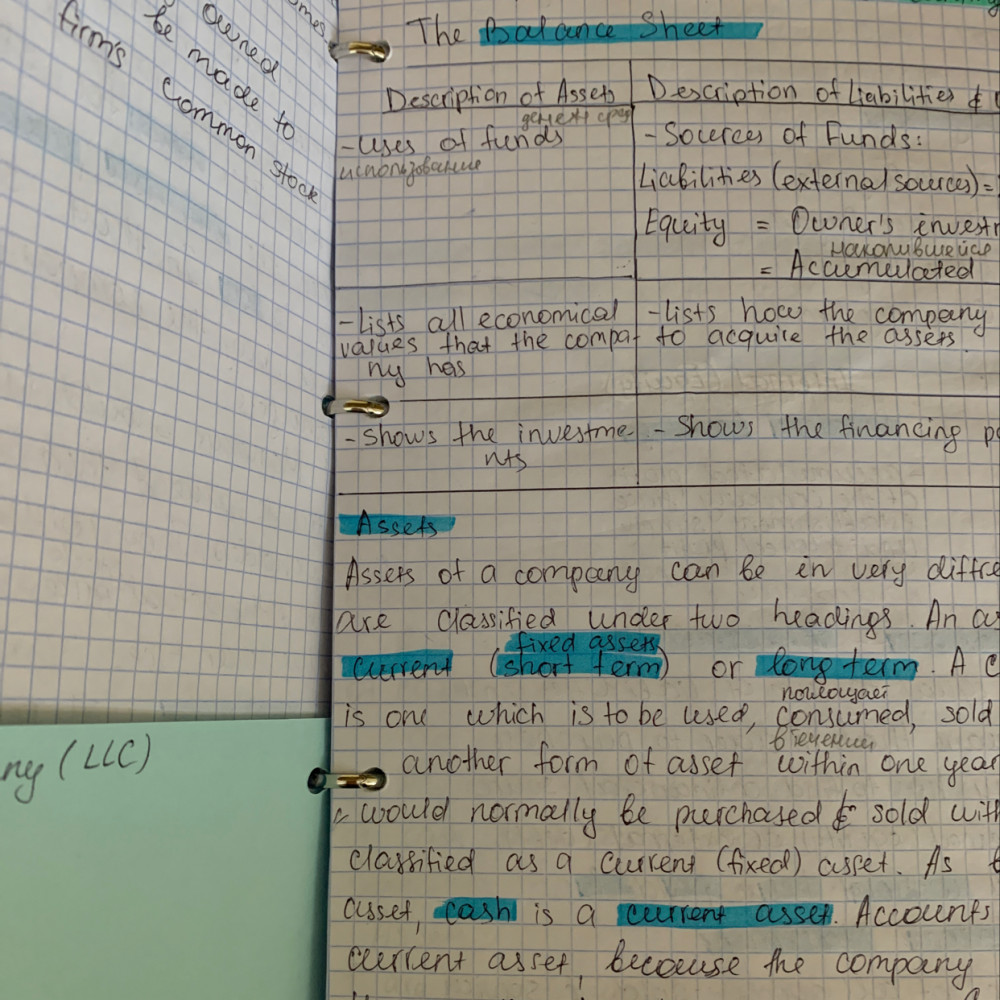 owned
be made to
firm's common stock
ny (LLC)
The Balance Sheet
Description of Assets
Description of Liabilities &
денежн сред
- Uses of funds
использование
- Sources of Funds:
Liabilities (external sources) =
Equity = Owner's invest
накопившейся
= Accumulated
- Lists all economical
values that the compa-
ny has
- Lists how the company
to acquire the assets
- Shows the investme
nts
- Shows the financing p
Assets
Assets of a company can be in very diffre
are classified under two headings. An as
fixed assets
current (short term) or long term. A c
поглощает
is one which is to be used, consumed, sold
в течении
another form of asset within one year
would normally be purchased & sold with
classified as a current (fixed) asset. As
asset, cash is a current asset. Accounts
current asset, because the company